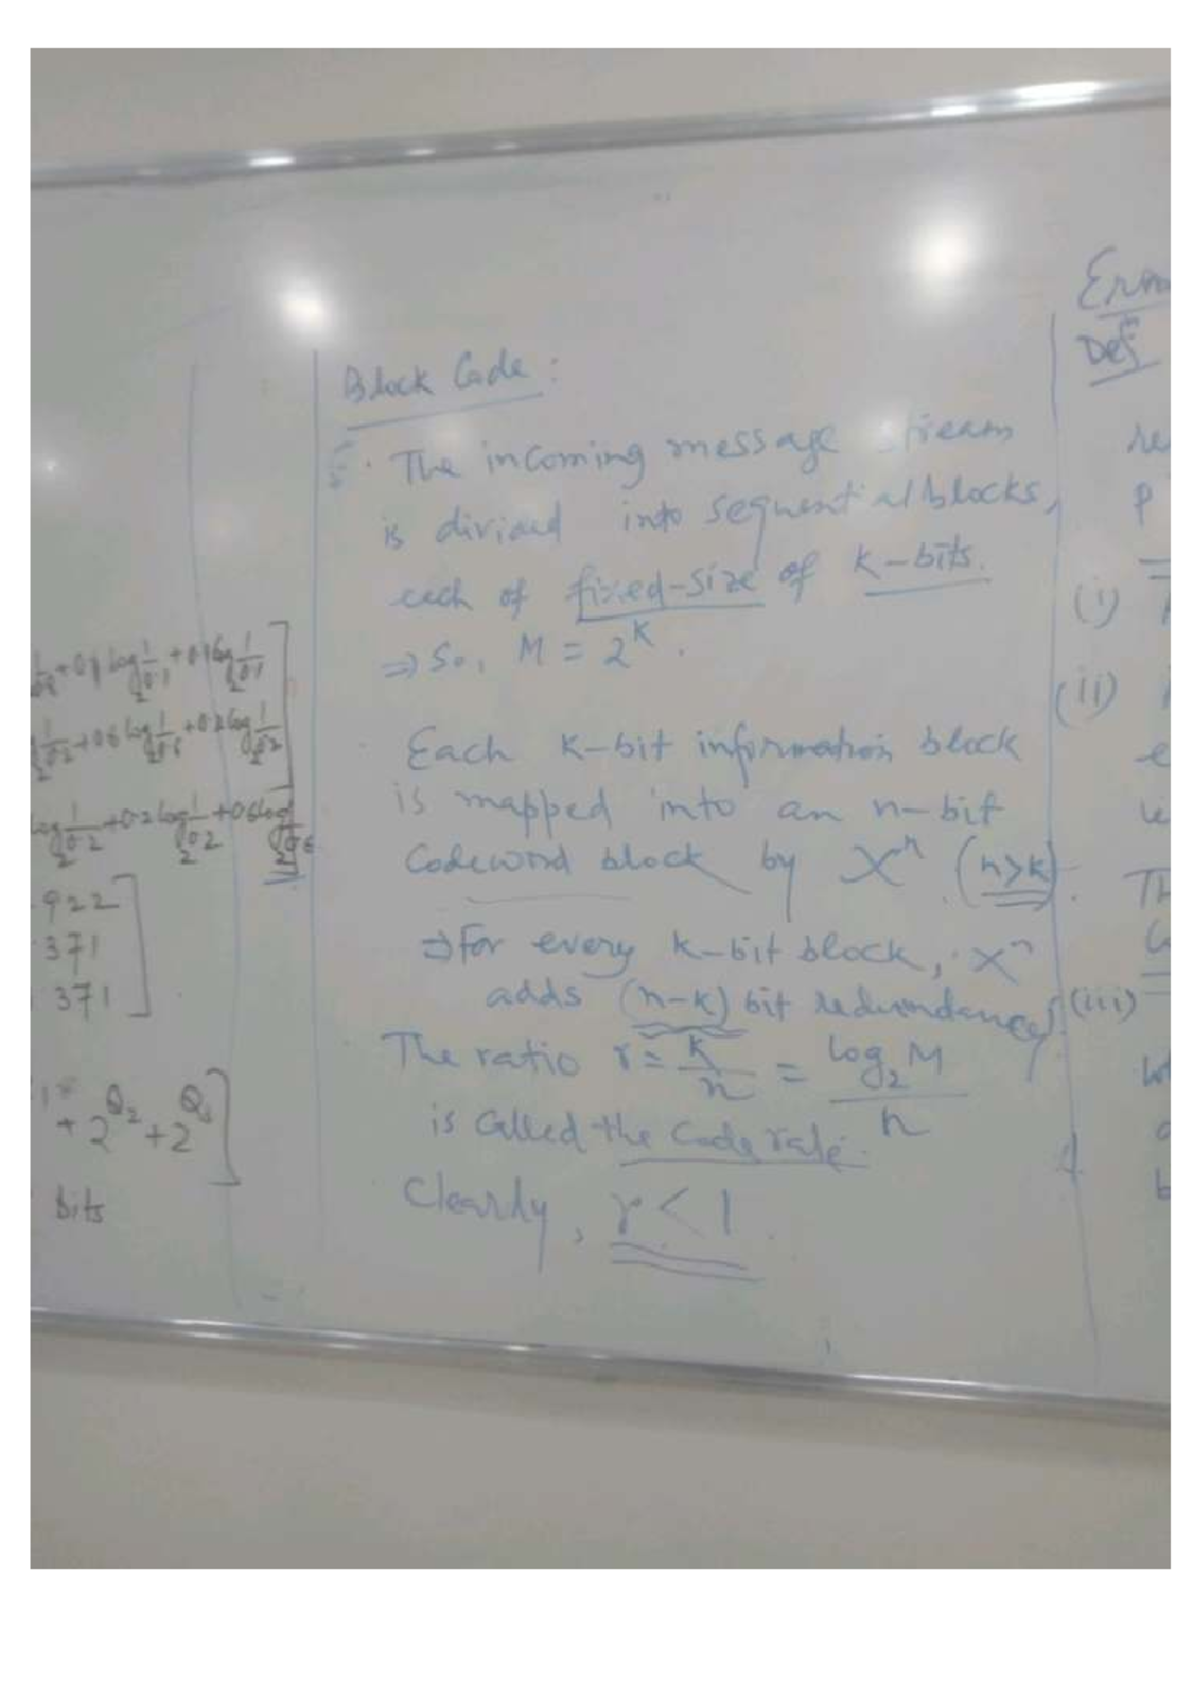 +0.1 log₂ 1/0.1 + 0.1 log₂ 1/0.1]
+0.6 log₂ 1/0.6 + 0.2 log₂ 1/0.2
log₂ 1/0.2 + 0.2 log₂ 1/0.2 + 0.6 log₂ 1/0.6
922
371
371
+ 2^Q₂ + 2^Q₃]
bits
Block Code:
The incoming message stream
is divided into sequential blocks,
each of fixed-size of k-bits.
⇒ So, M = 2^k.
Each k-bit information block
is mapped into an n-bit
Codeword block by Xⁿ (n>k).
⇒ For every k-bit block, Xⁿ
adds (n-k) bit redundancy.
The ratio r = k/n = log₂M/n
is Called the Code rate.
Clearly, r < 1
Def
(i)
(ii)
(iii)